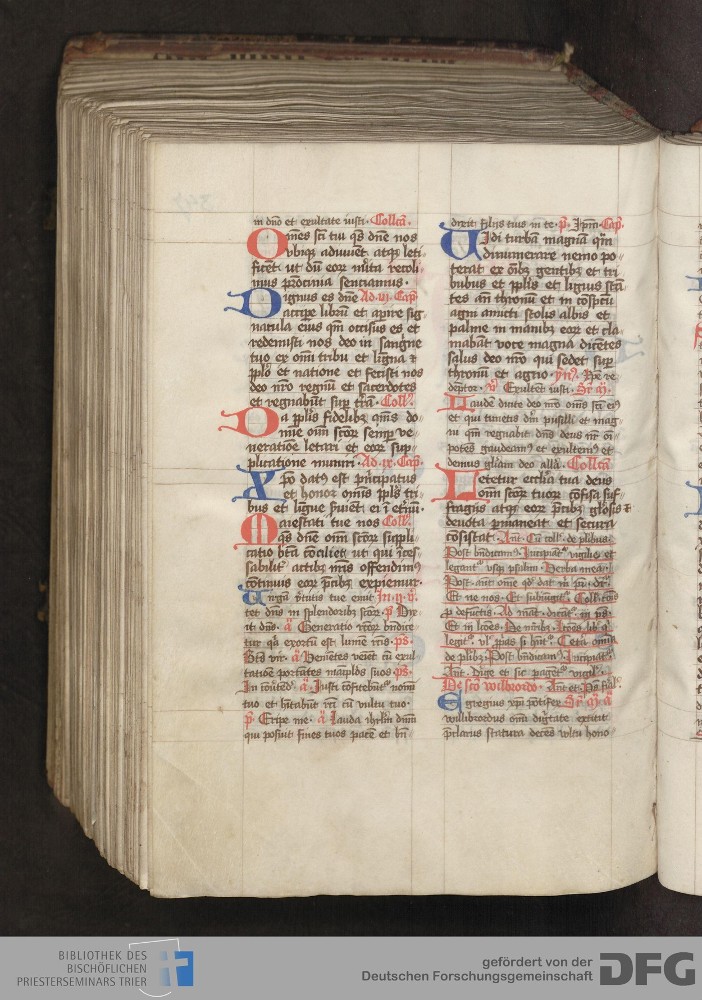 in dno et exultate iusti. Collcta.
Omēs sci tui qs dne nos
vbique adiuuent atque leti
ficent ut du eor mīta recoli
mus patrocinia senciamus.
Dignus es dne Ad vi. Cap
accipe librū et aperire sig
nacula eius qm occisus es et
redemisti nos deo in sangne
tuo ex omni tribu et ligna et
pplo et natione et fecisti nos
deo nro regnū et sacerdotes
et regnabūt sup trā. Coll.
Da pplis fidelibz qms do
mīe oīm scor semp ve
neratiōe letari et eor sup
plicatione muniri. Ad ix. Cap.
Xpo datus est principatus
et honor omīs ppls tri
bus et ligue
Maiestati tue nos Coll.
qs dne oīm scor suppli
catio btā conciliet ut qui inces
sabilit actibz nris offendim9
cotinuis eor pcibz expiemur.
Virgā vtutis tue emit In ii. v.
tet dns in splendoribz scor. p Dix
it dns. a Generatio rcor bndice
tur qa exortū est lumē rctis ps.
Bts vir. a Venietes veiet cū exul
tatiōe portātes maīplos suos ps.
In covtēd. a Iusti cofitebūt noīni
tuo et hitabūt rcti cū vultu tuo.
p. Eripe me. a Lauda ihrlm dnm
qui posuit fines tuos pacē et bn
dixit filijs tuis in te. p. Ipm. Cap.
Vidi turbā magnā qm
dinumerare nemo po
terat ex oībz gentibz et tri
bubus et pplis et liguis stā
tes an thronū et in cospectu
agni amicti stolis albis et
palme in manibz eor et cla
mabāt voce magna dicētes
salus deo nro qui sedet sup
thronū et agno. Yn. Xpe re
deptor. v. Exultēt iusti. Sr M.
Laudē dicite deo nro oīms sci ei9
et qui timetis dm pusilli et mag
ni qm regnabit dns deus nr oī
potēs gaudeam9 et exultem9 et
demus gliam deo alla. Collcta
Letetur ecclia tua deus
oīm scor tuor cofisa suf
fragijs atqe eor pcibz gliosis
deuota pmaneat et secura
cosistat. Ant. Cū coll. de plibus.
Post bndicam9 Incipiat vigilie et
legant vsqe psalm. Verba mea.
Post ant
Et ne nos. Et subiugit. Coll.
p defuctis. Ad mat. dicat in ps.
Et in lcōes.
legit
de plibz. Post bndicam9 Incipiat
Ant. Dige et sic paget vigil.
De sco wilbrordo. Ant et Ps
Egregius xpi potifex Sr M. a
willibrordus oīm dignitate extitit
pclarus statura decēs vltu hono
BIBLIOTHEK DES
BISCHÖFLICHEN
PRIESTERSEMINARS TRIER
gefördert von der
Deutschen Forschungsgemeinschaft
DFG